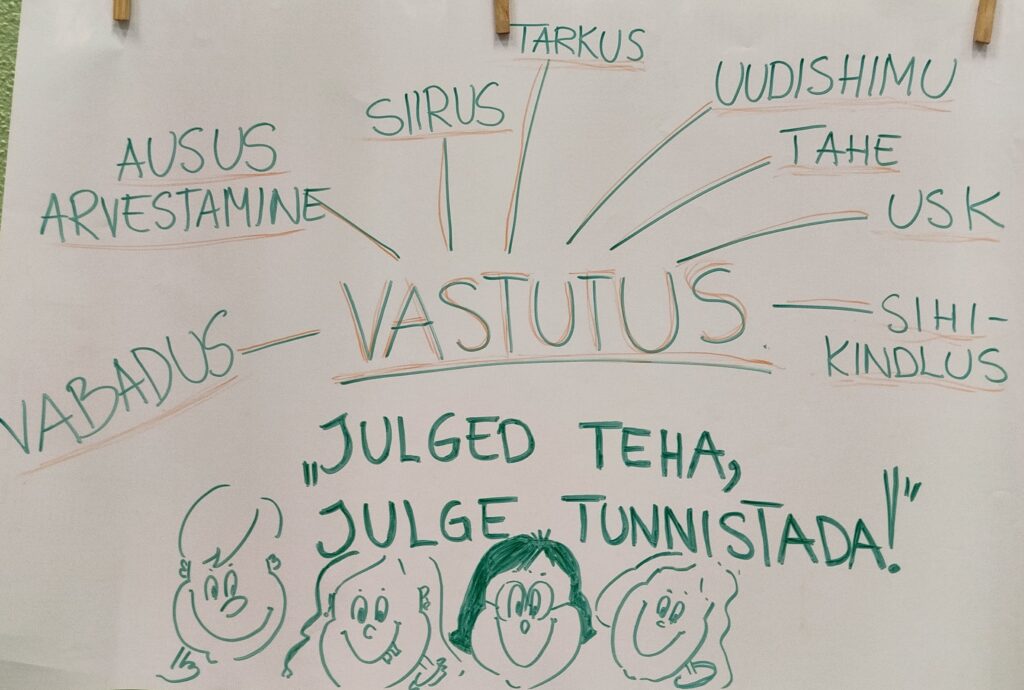 TARKUS
SIIRUS
UUDISHIMU
AUSUS
ARVESTAMINE
TAHE
USK
VASTUTUS
SIHI-
KINDLUS
VABADUS
„JULGED TEHA,
JULGE TUNNISTADA!"